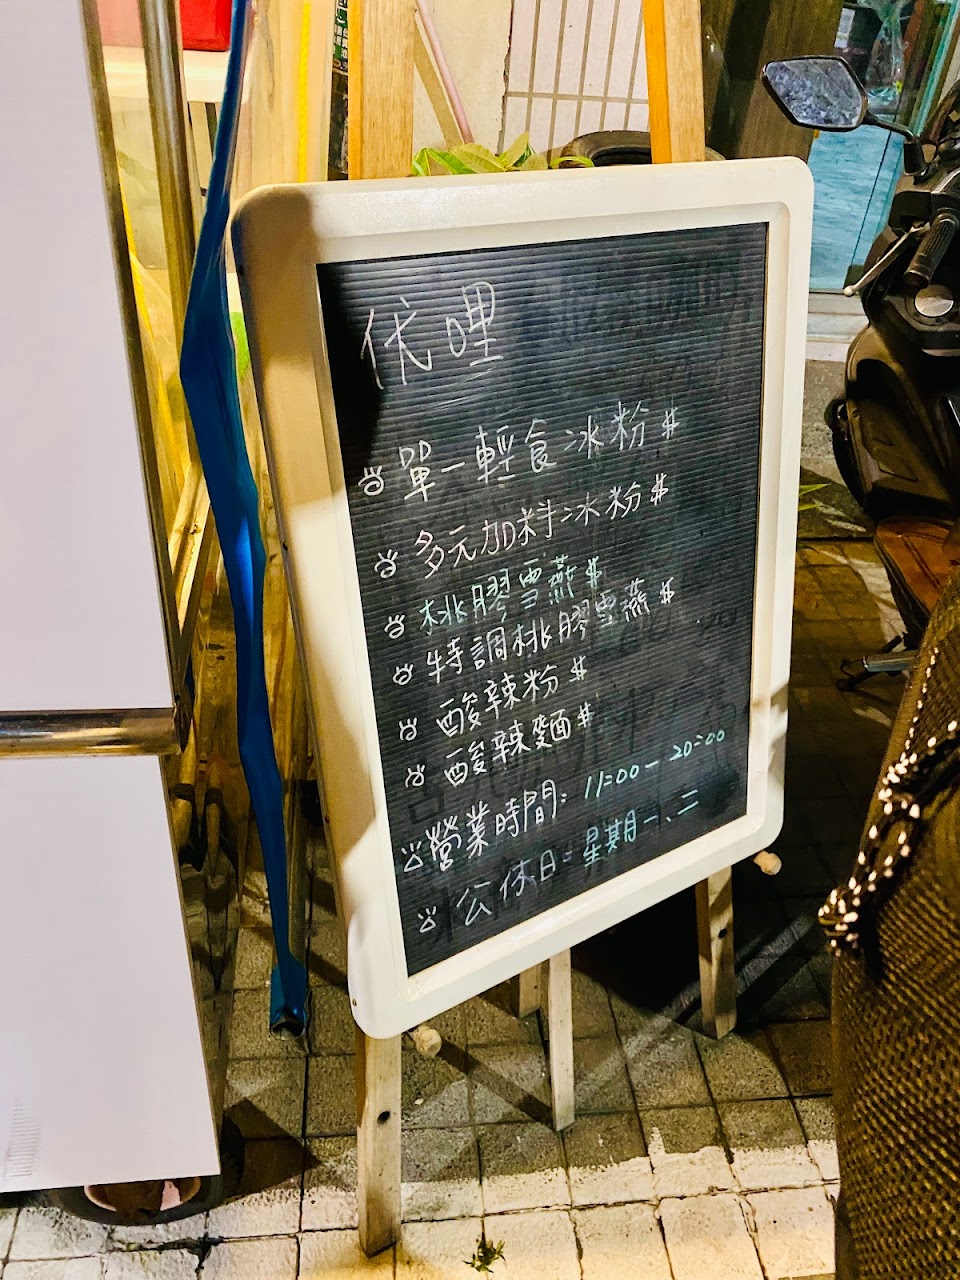 依哩
單一輕食冰粉 $
多元加料冰粉 $
桃膠雪燕 $
特調桃膠雪燕 $
酸辣粉 $
酸辣麵 $
營業時間: 11:00-20:00
公休日: 星期一、二